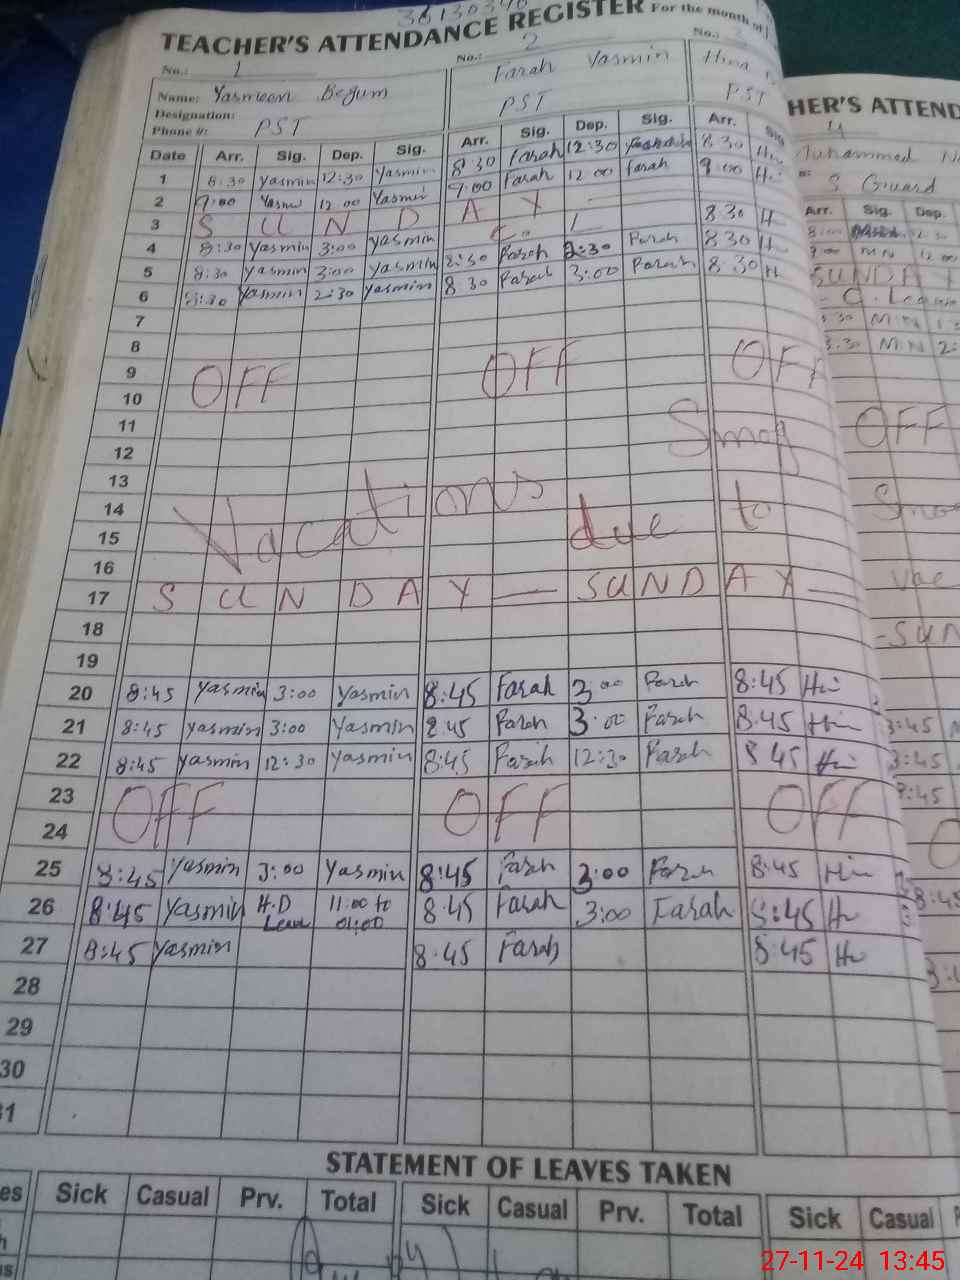 36130340
TEACHER'S ATTENDANCE REGISTER For the month of
No.: 1 No.: 2 No.:
Name: Yasmeen Begum Farah Yasmin Hina
Designation:
Phone #: PST PST PST
Date Arr. Sig. Dep. Sig. Arr. Sig. Dep. Sig. Arr. Sig.
1 8:30 Yasmin 12:30 Yasmin 8 30 Farah 12:30 8 30 Hi
2 9:00 Yasmi 12:00 Yasmin 9:00 Farah 12 00 Farah 9:00 Hi
3 S U N D A Y —
4 8:30 Yasmin 3:00 Yasmin C. L 8 30 H
5 8:30 Yasmin 3:00 Yasmin 8:30 Farah 2:30 Farah 8 30 H
6 8:30 Yasmin 2:30 Yasmin 8 30 Farah 3:00 Farah 8 30 H
7
8
9 OFF OFF OFF
10
11 Smog
12
13
14 Vacations due to
15
16
17 S U N D A Y — S U N D A Y —
18
19
20 8:45 Yasmin 3:00 Yasmin 8:45 Farah 3:00 Farah 8:45 Hi
21 8:45 Yasmin 3:00 Yasmin 8:45 Farah 3:00 Farah 8:45 Hi
22 8:45 Yasmin 12:30 Yasmin 8:45 Farah 12:30 Farah 8 45 Hi
23 OFF OFF OFF
24
25 8:45 Yasmin 3:00 Yasmin 8:45 Farah 3:00 Farah 8:45 Hi
26 8:45 Yasmin H.D Leave 11:00 to 01:00 8:45 Farah 3:00 Farah 8:45 H
27 8:45 Yasmin 8:45 Farah 8:45 H
28
29
30
31
STATEMENT OF LEAVES TAKEN
es Sick Casual Prv. Total Sick Casual Prv. Total Sick Casual P
HER'S ATTEND
Muhammad N
S Guard
Arr. Sig. Dep.
9:00 MN 12 00
SUNDA
C. Leave
8:30 M.N
8:30 M.N 2:
OFF
Smo
Vac
-SUN
8:45
8:45
8:45
8:45
27-11-24 13:45